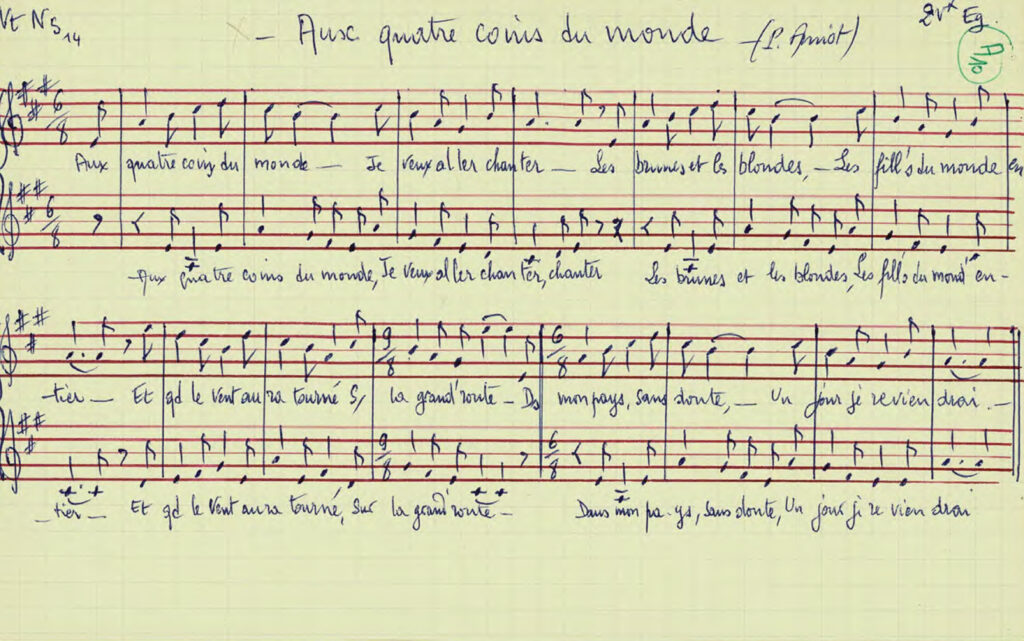 Vt N5 14
2vx Eg.
- Aux quatre coins du monde - (P. Amiot)
A10
6/8
Aux quatre coins du monde — Je veux al ler chanter — Les brunes et les blondes, — Les fill's du monde en
6/8
Aux quatre coins du monde, Je veux al ler chan ter, chanter Les brunes et les blondes, Les fill's du mond' en-
9/8 6/8
-tier — Et qd le vent au ra tourné S/ la grand' route — Ds mon pays, sans doute, — Un jour je re vien drai. —
9/8 6/8
-tier — Et qd le vent au ra tourné, Sur la grand' route — Dans mon pa-ys, sans doute, Un jour je re vien drai